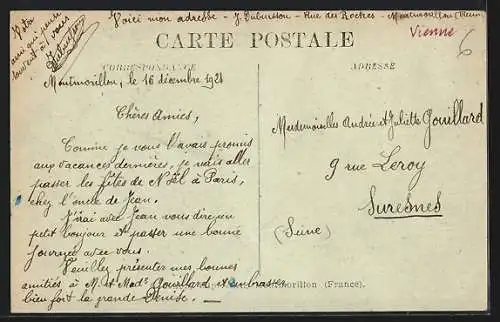 Voici mon adresse - J. Dubuisson - Rue des Roches - Montmorillon (Vienne)
Votre
ami qui pense
souvent à vous
JDubuisson
Vienne
6
CARTE POSTALE
CORRESPONDANCE
ADRESSE
Montmorillon, le 16 décembre 1921
Chères Amies,
Comme je vous l'avais promis
aux vacances dernières, je vais aller
passer les fêtes de Noël à Paris,
chez l'oncle de Jean.
J'irai avec Jean vous dire un
petit bonjour et passer une bonne
journée avec vous.
Veuillez présenter mes bonnes
amitiés à M. et Made Gouillard et embrasser
bien fort la grande Denise. —
Merdemoiselles André et Juliette Gouillard
9 rue Leroy
Suresnes
(Seine)
morillon (France).